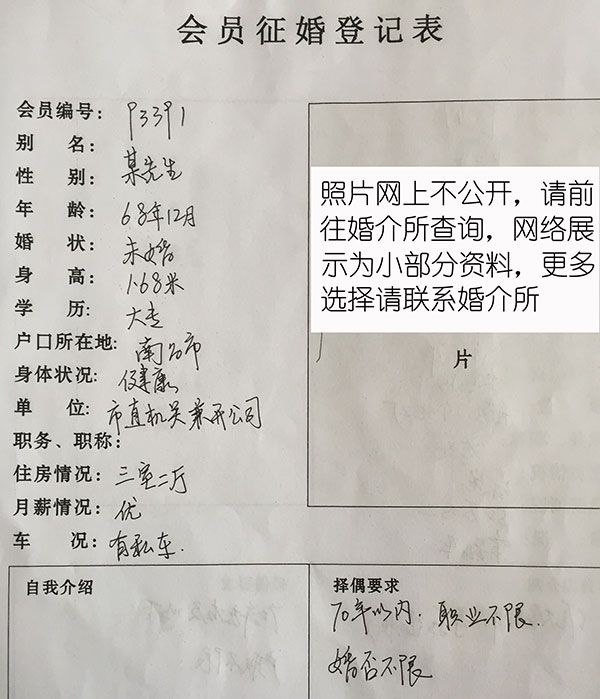 会员征婚登记表
会员编号: P33P1
别 名:
性 别: 某先生
年 龄: 68年12月
婚 状: 未婚
身 高: 1.68米
学 历: 大专
户口所在地: 南昌市
身体状况: 健康
单 位: 市直机关兼开公司
职务、职称:
住房情况: 三室二厅
月薪情况: 优
车 况: 有私车.
照片网上不公开，请前
往婚介所查询，网络展
示为小部分资料，更多
选择请联系婚介所
片
自我介绍
择偶要求
70年以内. 职业不限.
婚否不限